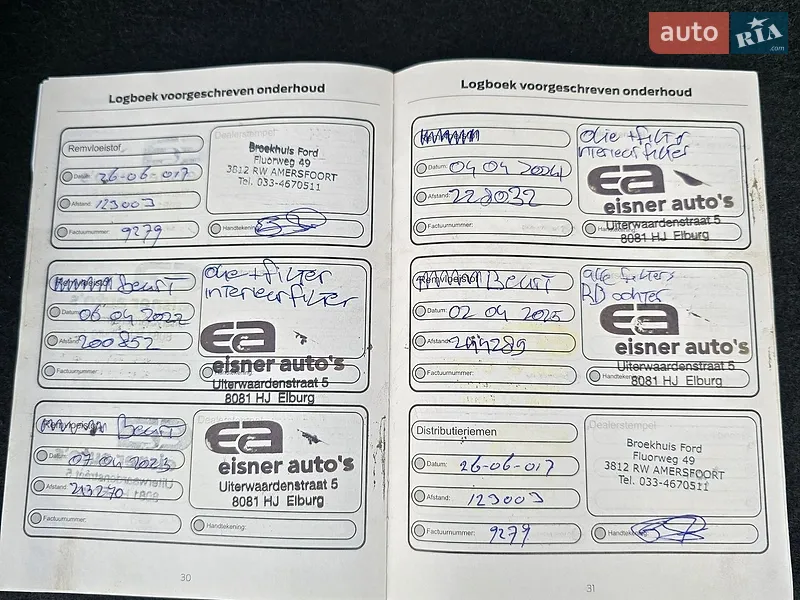 auto RIA .com
Logboek voorgeschreven onderhoud
Remvloeistof
Datum: 26-06-017
Afstand: 123003
Factuurnummer: 9279
Dealerstempel
Broekhuis Ford
Fluorweg 49
3812 RW AMERSFOORT
Tel. 033-4670511
Handtekening:
Remvloeistof Beurt
Datum: 06 04 2022
Afstand: 200852
Factuurnummer:
olie + filter
interieurfilter
ea
eisner auto's
Uiterwaardenstraat 5
8081 HJ Elburg
Remvloeistof Beurt
Datum: 07 04 2023
Afstand: 213270
Factuurnummer:
ea
eisner auto's
Uiterwaardenstraat 5
8081 HJ Elburg
Handtekening:
30
Logboek voorgeschreven onderhoud
Datum: 04 04 2024
Afstand: 228032
Factuurnummer:
olie + filter
interieurfilter
ea
eisner auto's
Uiterwaardenstraat 5
8081 HJ Elburg
Remvloeistof Beurt
Datum: 02 04 2025
Afstand: 244289
Factuurnummer:
alle filters
RB achter
ea
eisner auto's
Uiterwaardenstraat 5
8081 HJ Elburg
Distributieriemen
Datum: 26-06-017
Afstand: 123003
Factuurnummer: 9279
Dealerstempel
Broekhuis Ford
Fluorweg 49
3812 RW AMERSFOORT
Tel. 033-4670511
Handtekening:
31